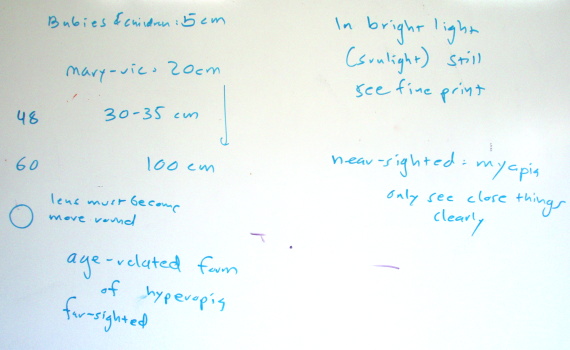 Babies & children: 5 cm
mary-vic: 20cm
48 30-35 cm
60 100 cm
lens must become
more round
age-related form
of hyperopia
far-sighted
In bright light
(sunlight) still
see fine print
near-sighted: myopia
only see close things
clearly